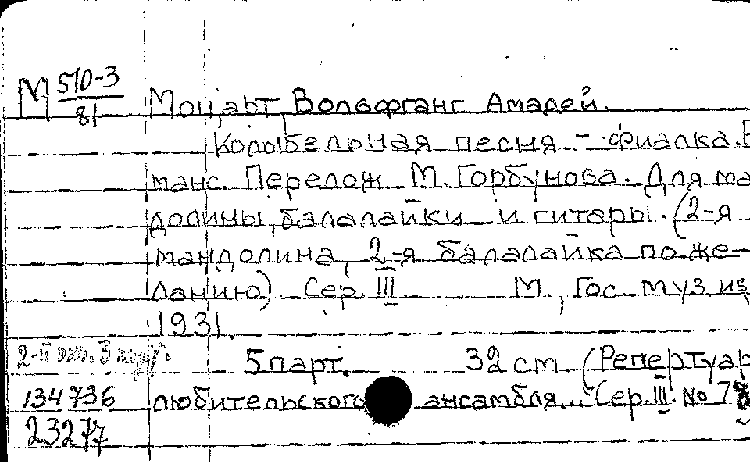 М 510-3
81
Моцарт Вольфганг Амадей.
Колыбельная песня - Фиалка.
манс. Перелож. М. Горбунова. Для ма
долины, балалайки и гитары. (2-я
мандолина, 2-я балалайка по же-
ланию) Сер. III М., Гос. муз. из
1931.
5 парт. 32 см (Репертуар
134736 любительского ансамбля. Сер. III. № 78
23277